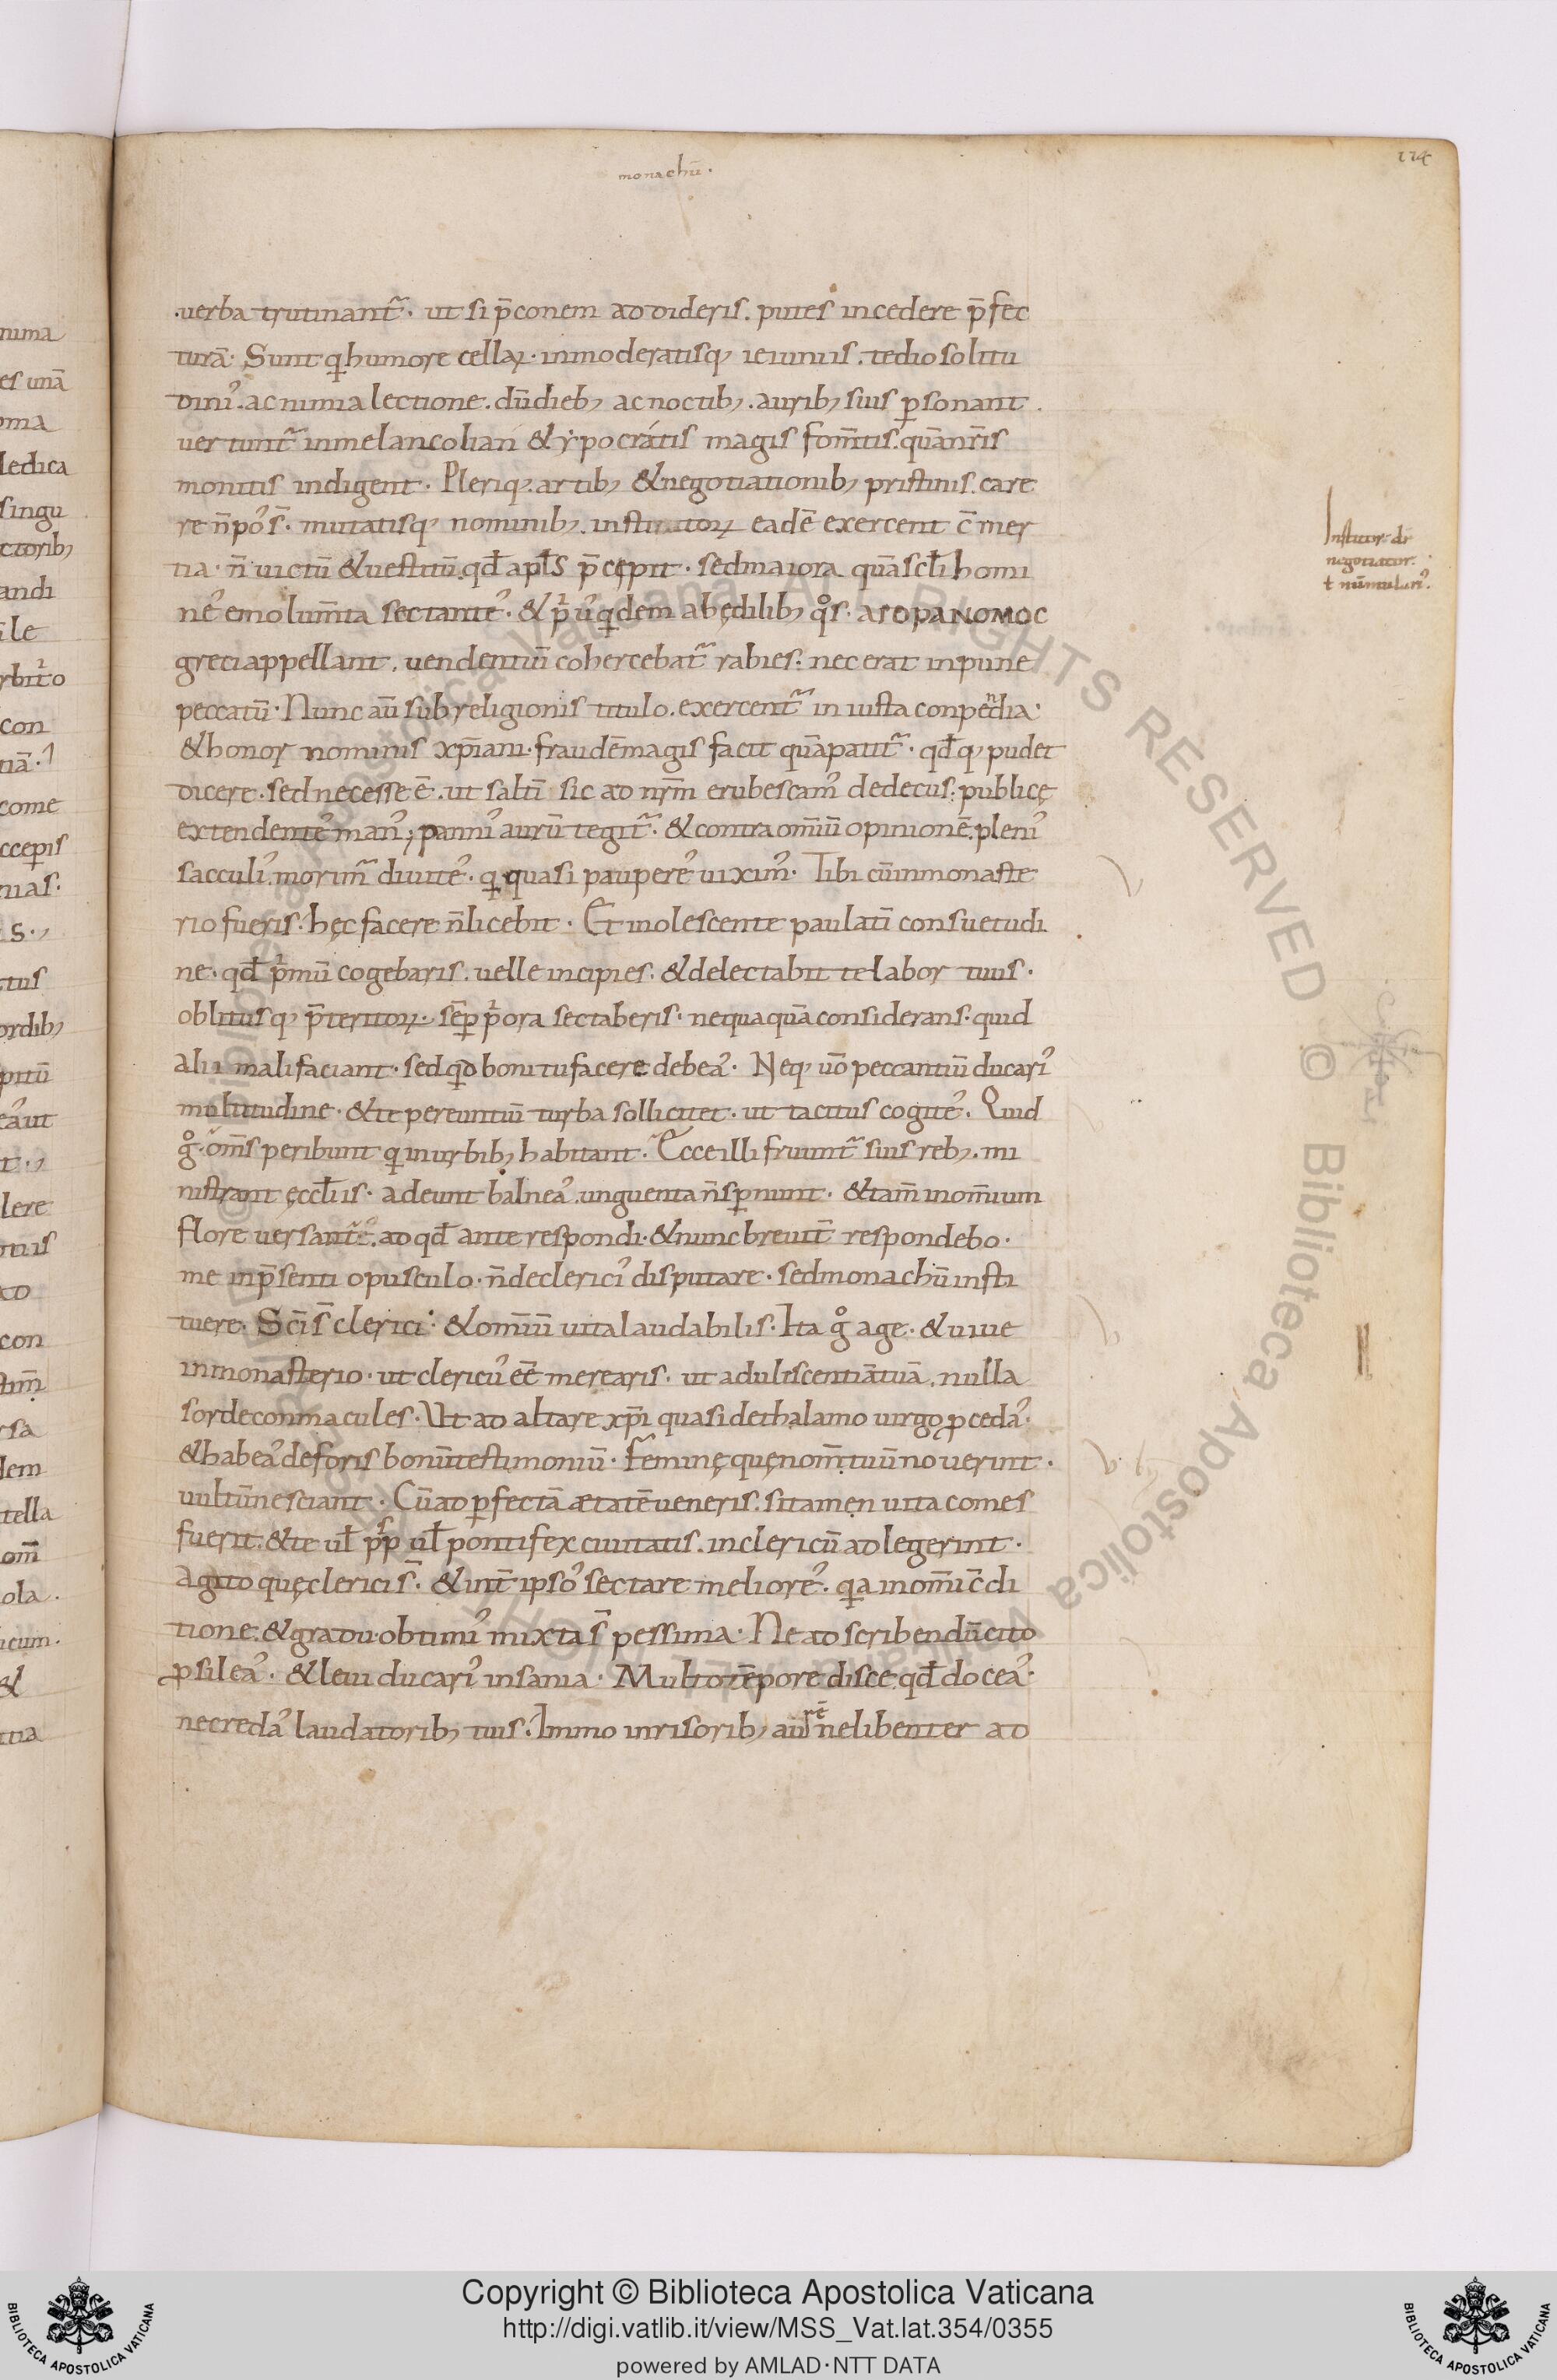 monachū.
174
uerba trutinant̃. ut si p̄conem addideris. putes incedere p̄fec
turā. Sunt qͥ humore cellaꝝ. inmoderatisq; ieiuniis. tedio solitu
diniꝰ. ac nimia lectione. dū dieb; ac noctib;. aurib; suis ꝑsonant.
uertunt̃ in melancolian &ypocrátis magis fom̄tis. quā nr̄is
monitis indigent. Pleriq;. artib; & negotiationib; pristinis. care
re n̄ poꝰs̄. mutatisq; nominib;. institutoꝝ eadē exercent c̄mer
tia. n̄ uictū & uestitū. qđ apłs p̄cępit. sed maiora quā scłi homi
neꝰ emolum̄ta sectanteꝰ. & pͥuꝰ qͥdem ab ędilib; qͦs. ΑΓΟΡΑΝΟΜΟC
greci appellant. uendentiū cohercebat̃ rabies. nec erat inpune
peccatū. Nunc aū sub religionis titulo. exercent̃ iniusta conpendia.
& honor nominis xp̄iani. fraudē magis facit quā patit̃. qđq; pudet
dicere. sed necesse ē. ut saltī sic ad nr̄m erubescamꝰ dedecus. publicę
extendenteꝰ manꝰ; panniꝰ aurū tegit̃. & contra om̄iū opinionē. pleniꝰ
sacculiꝰ. morim̃ diuiteꝰ. qͥ quasi paupereꝰ uiximꝰ. Tibi cū in monaste
rio fueris. hęc facere n̄ licebit. Et inolescente paulatī consuetudi
ne. qđ pͥmū cogebaris. uelle incipies. & delectabit te labor tuus.
oblitusq; p̄teritoꝝ. sēꝑ pͥora sectaberis. nequaquā considerans. quid
alii mali faciant. sed qͥd boni tu facere debeaꝰ. Neq; uō peccantiū ducariꝰ
multitudine. & te pereuntiū turba sollicitet. ut tacitus cogiteꝰ. Quid
gͦ. om̄s peribunt qͥ in urbib; habitant. Ecce illi fruunt̃ suis reb;. mi
nistrant ęccłiis. adeunt balneaꝰ. unguenta n̄ sꝑnunt. & tam̄ in om̄ium
flore uersant̃. ad qđ ante respondi. & nunc breuit̄ respondebo.
me in p̄senti opusculo. n̄ de clericiꝰ disputare. sed monachū insti
tuere. Sc̄i s̄ clerici. & om̄iū uita laudabilis. Ita gͦ age. & uiue
in monasterio. ut clericuꝰ eē merearis. ut aduliscentiā tuā. nulla
sorde conmacules. Ut ad altare xp̄i quasi de thalamo uirgo ꝓcedaꝰ.
& habeaꝰ de foris bonū testimoniū. Feminę quę nom̄ tuū nouerint.
uultū nesciant. Cū ad ꝑfectā ætatē ueneris. si tamen uita comes
fuerit. & te uł pͥp uł pontifex ciuitatis. in clericū adlegerint.
agito quę clerici s̄. & int̄ ipsoꝰ sectare melioreꝰ. qͥa in om̄i c̄di
tione. & gradu. obtimiꝰ mixta s̄ pessima. Ne ad scribendū cito
ꝓsileaꝰ. & leui ducariꝰ insania. Multo tēpore disce. qđ doceaꝰ.
ne credaꝰ laudatorib; tuis. Immo inrisorib; aurē ne libenter ad
Institor. dr̄
negotiator.
ł nūmulariꝰ.
Copyright © Biblioteca Apostolica Vaticana
http://digi.vatlib.it/view/MSS_Vat.lat.354/0355
powered by AMLAD·NTT DATA